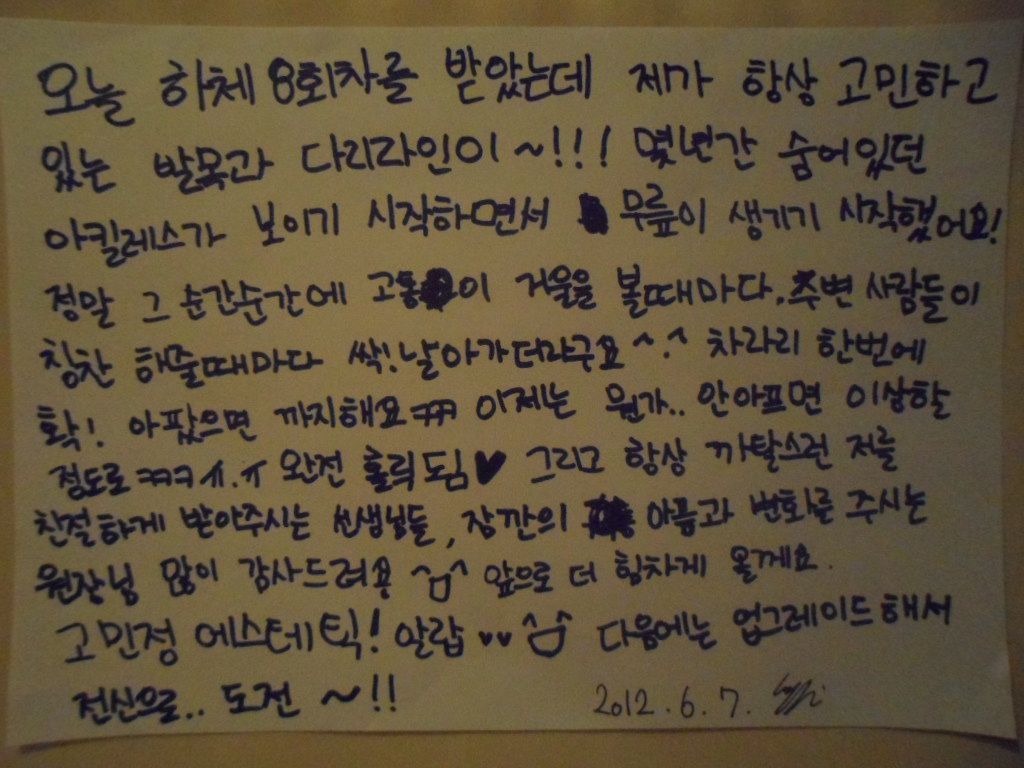 오늘 하체 8회차를 받았는데 제가 항상 고민하고
있는 발목과 다리라인이~!!! 몇년간 숨어있던
아킬레스가 보이기 시작하면서 무릎이 생기기 시작했어요!
정말 그 순간순간에 고통이 거울을 볼때마다. 주변 사람들이
칭찬 해줄때마다 싹! 날아가더라구요 ^.^ 차라리 한번에
확! 아팠으면 까지해요 ㅋㅋ 이제는 뭔가.. 안아프면 이상할
정도로 ㅋㅋㅋ ㅠ.ㅠ 완전 홀릭됨♥ 그리고 항상 까탈스런 저를
친절하게 받아주시는 선생님들, 잠깐의 아픔과 변화를 주시는
원장님 많이 감사드려용 ^_^ 앞으로 더 힘차게 올께요.
고민정 에스테틱! 알랍 ♥♥ ^_^ 다음에는 업그레이드해서
전신으로.. 도전 ~!!
2012.6.7.